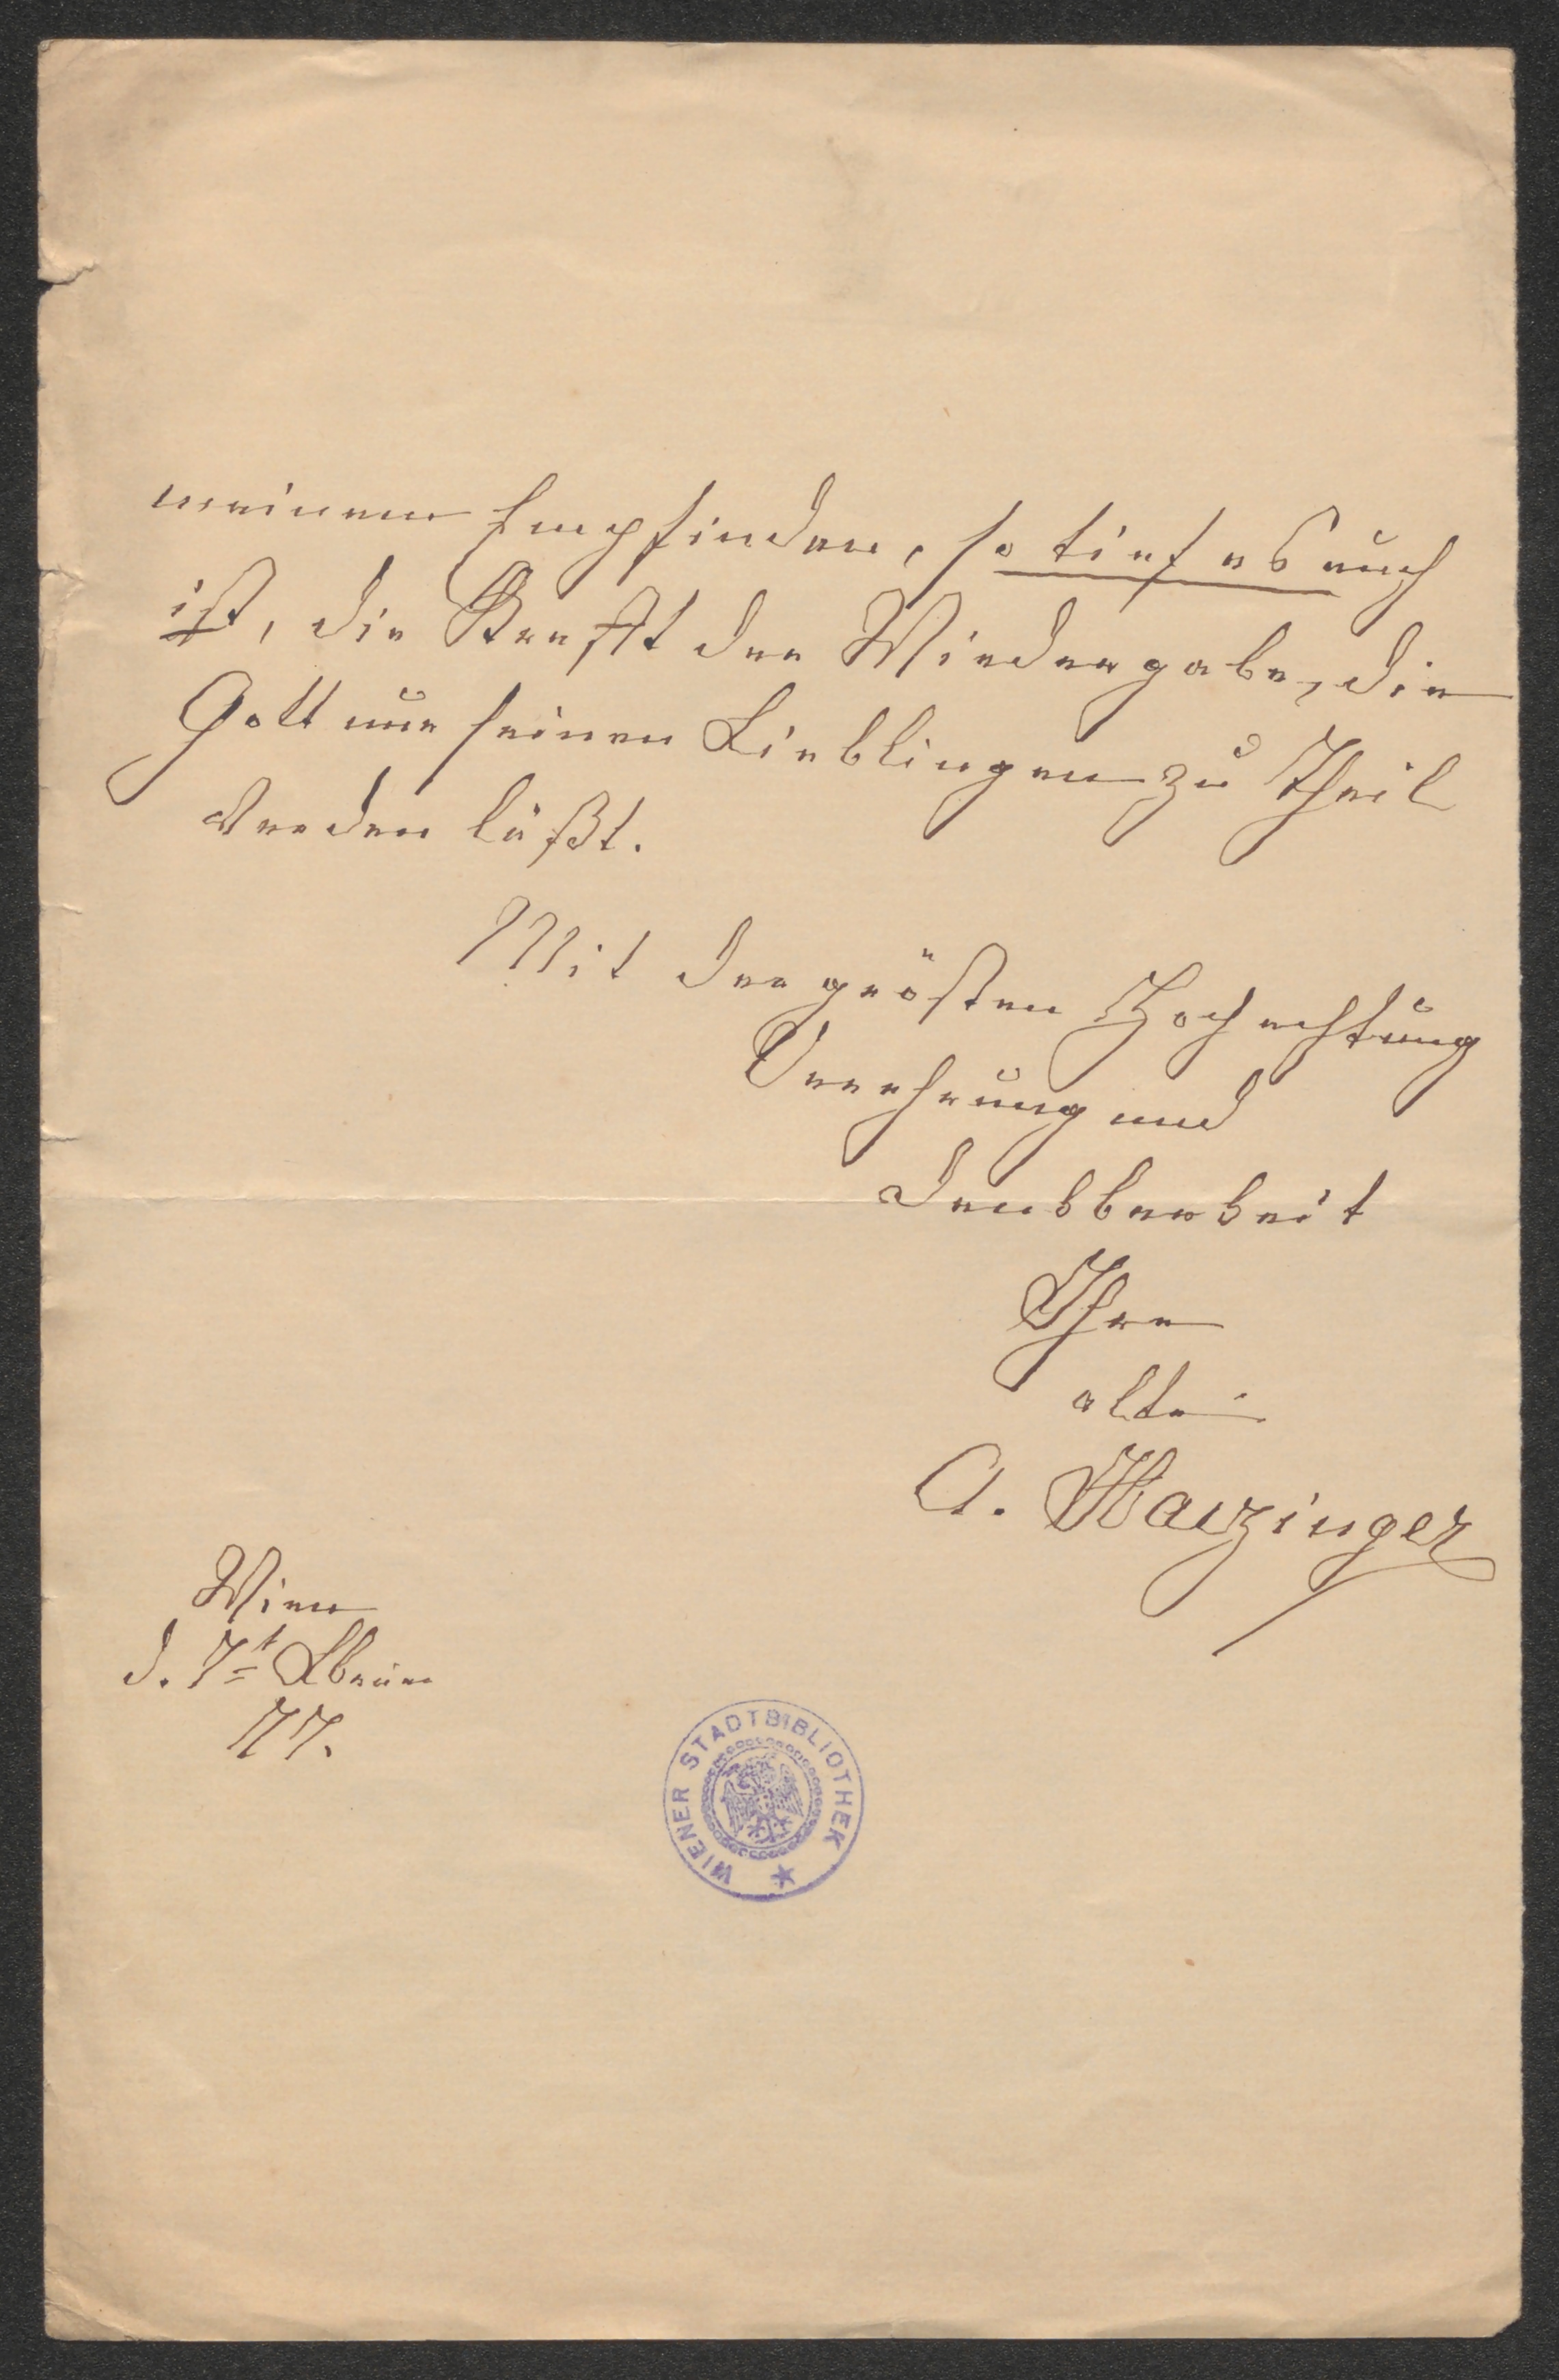 meinem Empfinden, so tief es auch
ist, die Kraft der Wiedergabe, die
Gott nur seinen Lieblingen zu Theil
werden läßt.
Mit der grösten Hochachtung
Verehrung und
Dankbarkeit
Ihre
alte
A. Haizinger
Wien
d. 7t
77.
WIENER STADTBIBLIOTHEK